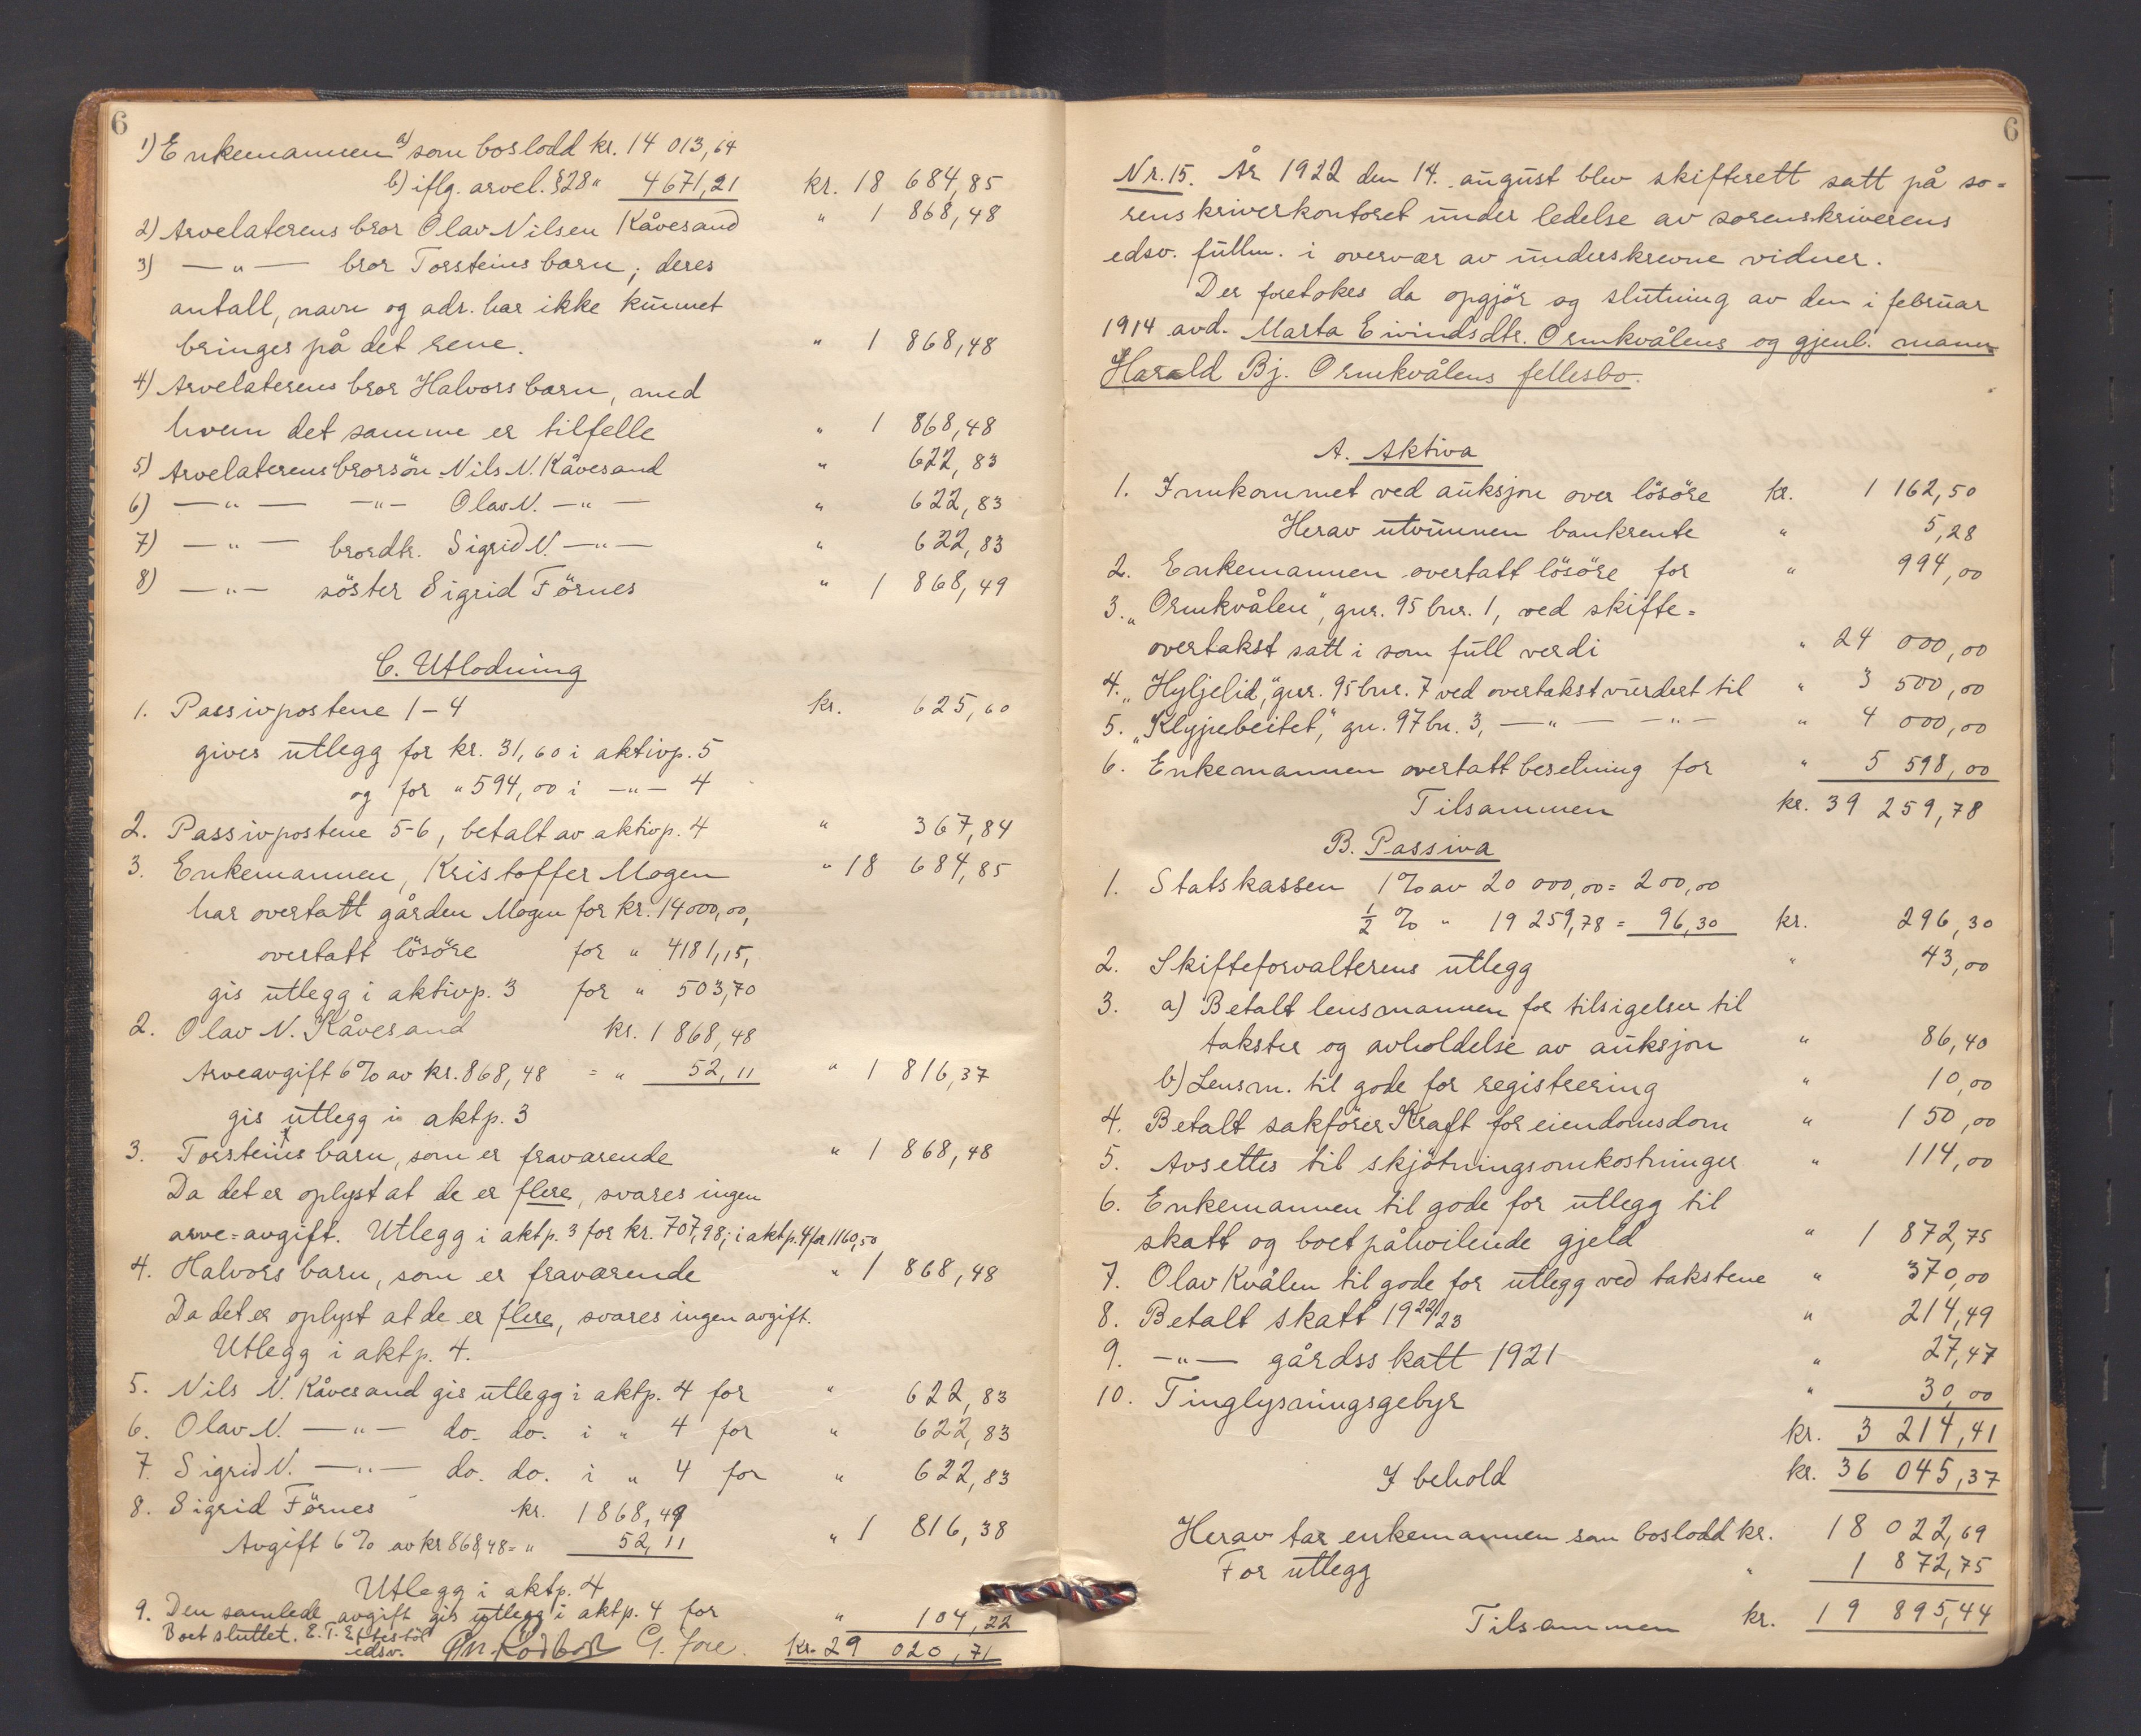 6
1) Enkemannen a) som boslodd kr. 14 013,64
b) iflg. arvel. §28 " 4671,21 kr. 18 684,85
2) Arvelaterens bror Olav Nilsen Kåvesand " 1 868,48
3) —"— bror Torsteins barn; deres
antall, navn og adr. har ikke kunnet
bringes på det rene. " 1 868,48
4) Arvelaterens bror Halvors barn, med
hvem det samme er tilfelle " 1 868,48
5) Arvelaterens brorsön Nils N. Kåvesand " 622,83
6) —"— —"— Olav N. —"— " 622,83
7) —"— brordtr. Sigrid N. —"— " 622,83
8) —"— söster Sigrid Förnes " 1 868,49
C. Utlodning
1. Passivpostene 1-4 kr. 625,60
gives utlegg for kr. 31,60 i aktivp. 5
og for " 594,00 i —"— 4
2. Passivpostene 5-6, betalt av aktivp. 4 " 367,84
3. Enkemannen, Kristoffer Mogen " 18 684,85
har overtatt gården Mogen for kr. 14000,00,
overtatt lösöre for " 4181,15,
gis utlegg i aktivp. 3 for " 503,70
2. Olav N. Kåvesand kr. 1 868,48
Arveavgift 6% av kr. 868,48 = " 52,11 " 1 816,37
gis utlegg i aktp. 3
3. Torsteins barn, som er fraværende " 1 868,48
Da det er oplyst at de er flere, svares ingen
arve=avgift. Utlegg i aktp. 3 for kr. 707,98; i aktp. 4 for 1160,50
4. Halvors barn, som er fraværende " 1 868,48
Da det er oplyst at de er flere, svares ingen avgift.
Utlegg i aktp. 4.
5. Nils N. Kåvesand gis utlegg i aktp. 4 for " 622,83
6. Olav N. —"— do. do. i " 4 for " 622,83
7. Sigrid N. —"— do. do. i " 4 for " 622,83
8. Sigrid Förnes kr. 1868,49
Avgift 6% av kr 868,48 = " 52,11 " 1 816,38
Utlegg i aktp. 4
9. Den samlede avgift gis utlegg i aktp. 4 for " 104,22
Boet sluttet. E. T. Eftestöl G. Jore. kr. 29 020,71
edsv.
6
Nr. 15. År 1922 den 14. august blev skifterett satt på so=
renskriverkontoret under ledelse av sorenskriverens
edsv. fullm. i overvær av underskrevne vidner.
Der foretokes da opgjör og slutning av den i februar
1914 avd. Marta Eivindsdtr. Ormkvålens og gjenl. mann
Harald Bj. Ormkvålens fellesbo.
A. Aktiva
1. Innkommet ved auksjon over lösöre kr. 1 162,50
Herav utvunnen bankrente " 5,28
2. Enkemannen overtatt lösöre for " 994,00
3. "Ormkvålen", gnr. 95 bnr. 1, ved skifte=
overtakst satt i som full verdi " 24 000,00
4. "Hyljelid", gnr. 95 bnr. 7 ved overtakst vurdert til " 3 500,00
5. "Klypebeitet", gn. 97 bn. 3, —"— —"— " 4 000,00
6. Enkemannen overtatt besetning for " 5 598,00
Tilsammen kr. 39 259,78
B. Passiva
1. Statskassen 1% av 20 000,00 = 200,00
½ % " 19 259,78 = 96,30 kr. 296,30
2. Skifteforvalterens utlegg " 43,00
3. a) Betalt lensmannen for tilsigelser til
takster og avholdelse av auksjon " 86,40
b) Lensm. til gode for registrering " 10,00
4. Betalt sakförer Kraft for eiendomsdom " 150,00
5. Avsettes til skjötningsomkostninger " 114,00
6. Enkemannen til gode for utlegg til
skatt og boet påhvilende gjeld " 1 872,75
7. Olav Kvålen til gode for utlegg ved takstene " 370,00
8. Betalt skatt 1922/23 " 214,49
9. —"— gårdsskatt 1921 " 27,47
10. Tinglysningsgebyr " 30,00
kr. 3 214,41
I behold kr. 36 045,37
Herav tar enkemannen som boslodd kr. 18 022,69
For utlegg " 1 872,75
Tilsammen kr. 19 895,44